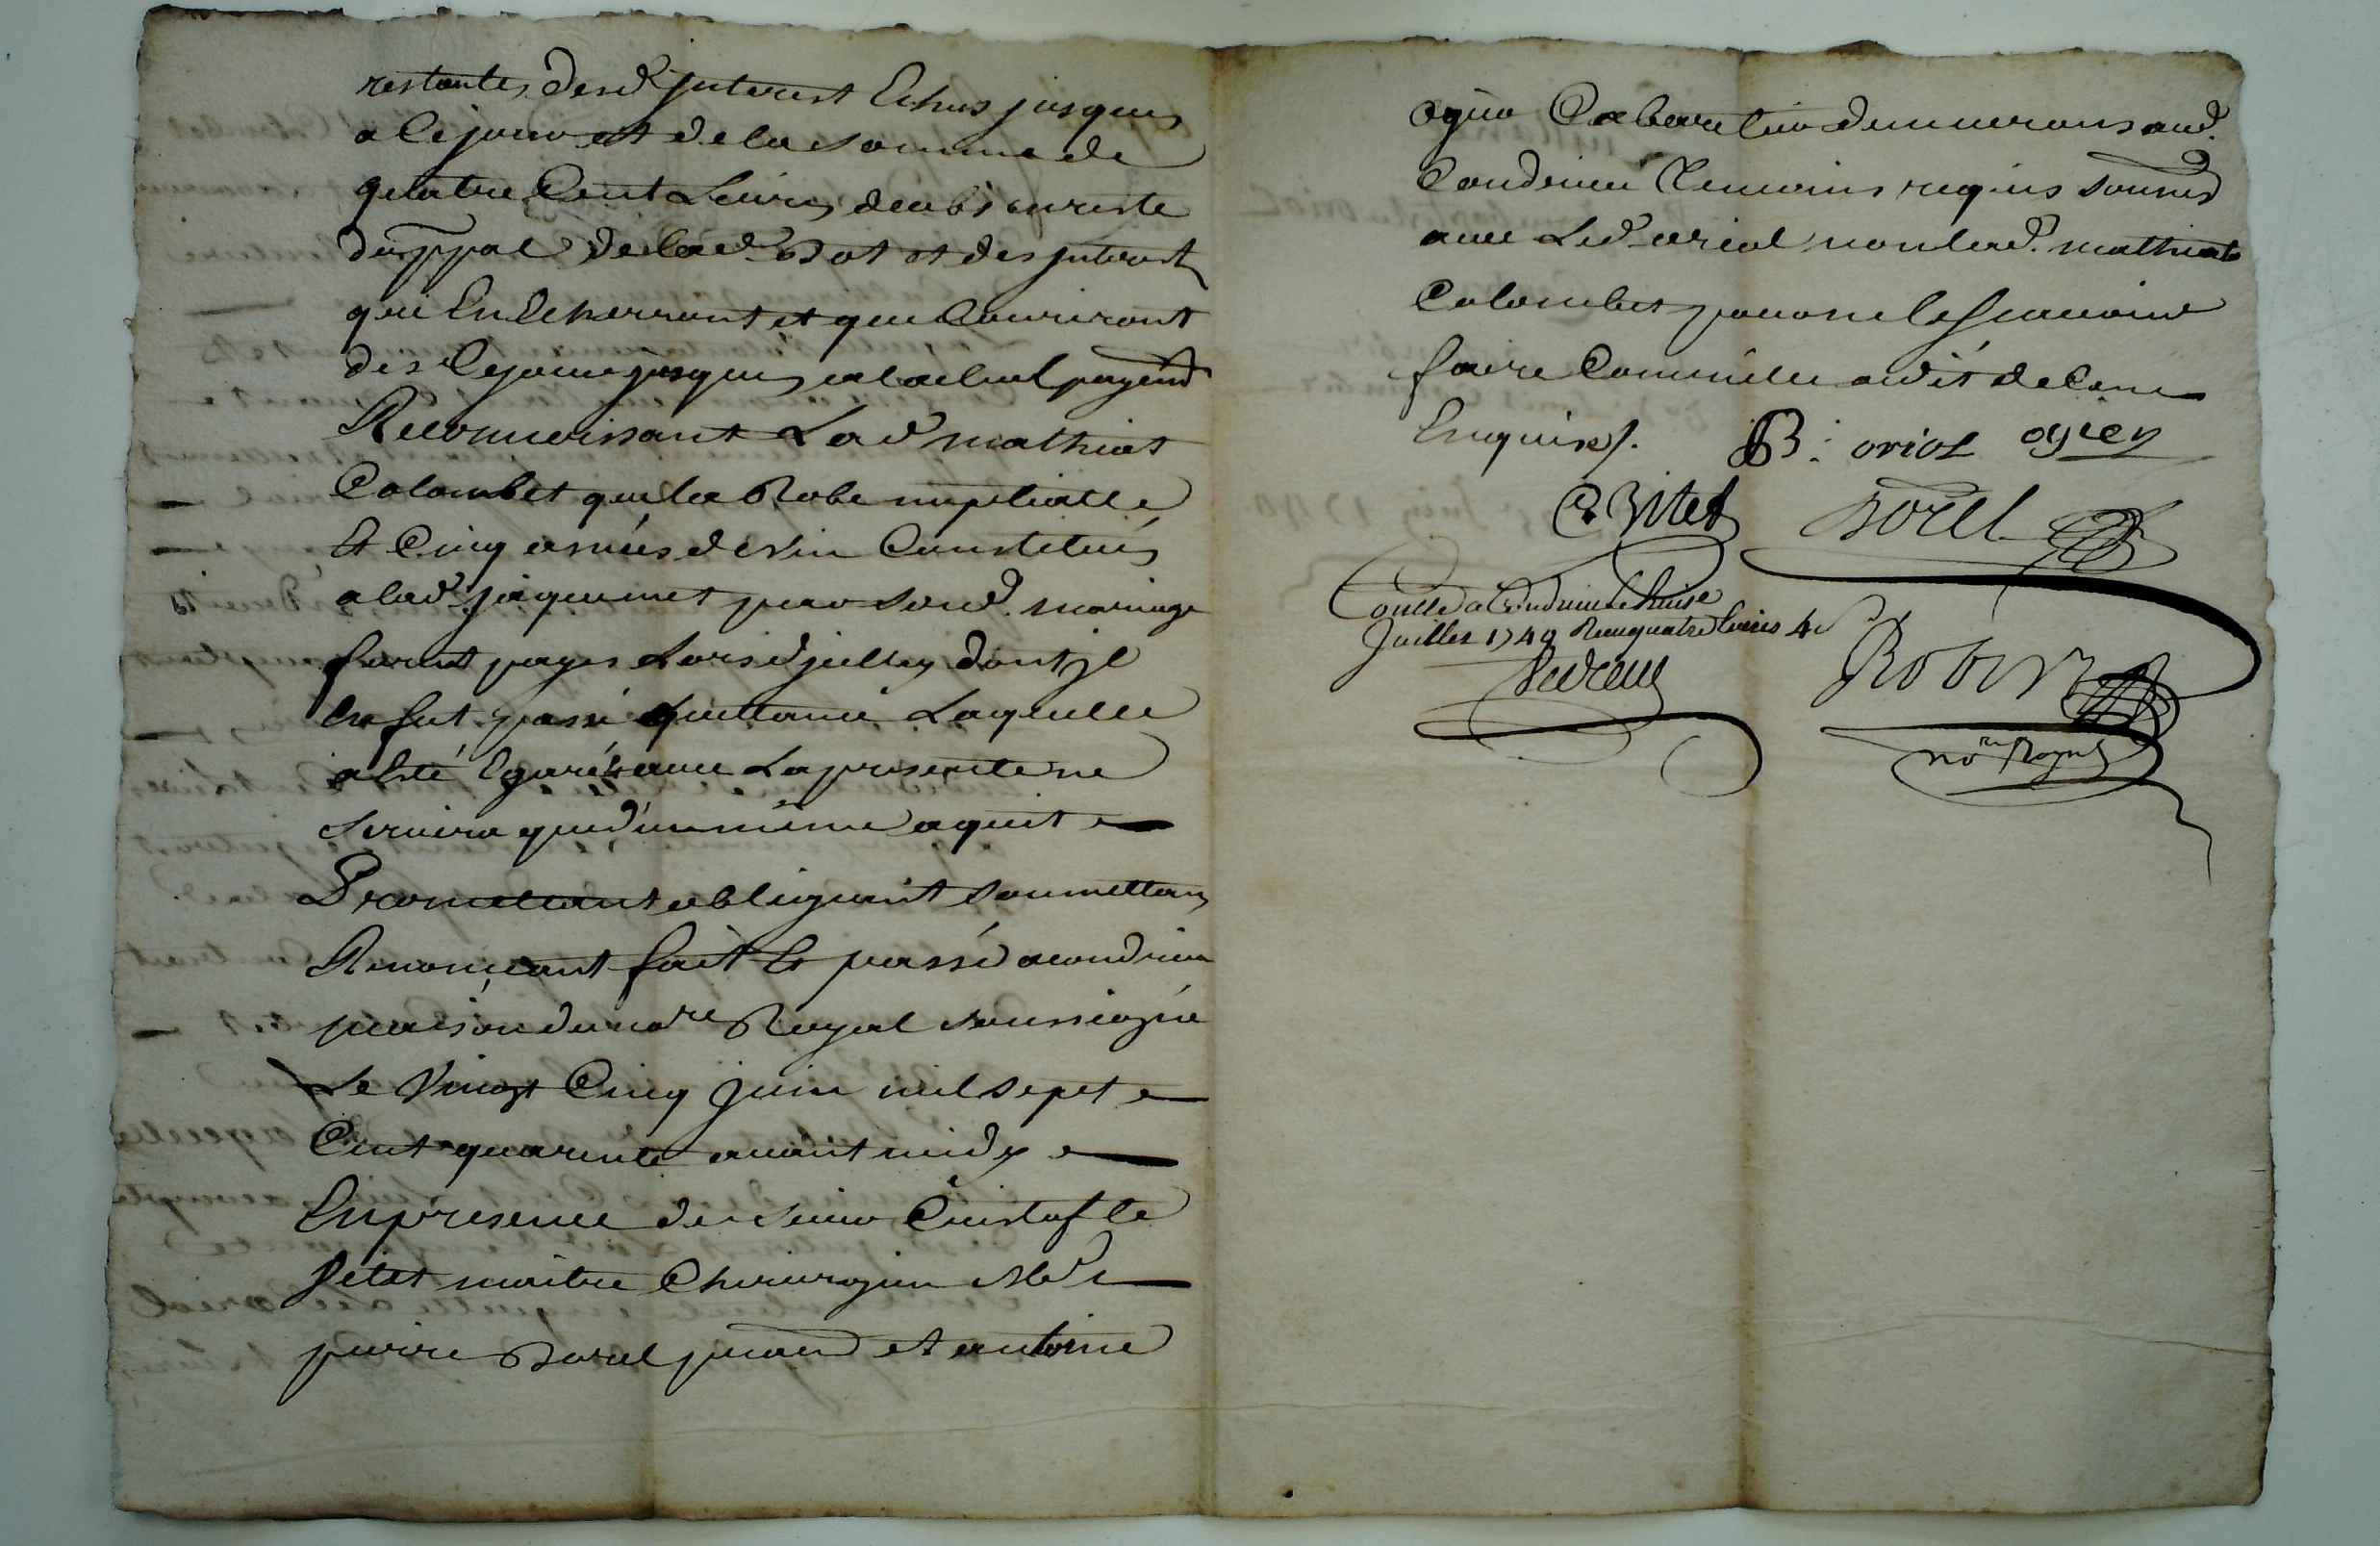 restantes desd. jnterest Echus jusques
a Cejour et de la somme de
quatre Cent Livres deubs en reste
du ppal de lad. Dot et des jnterest
qui En Echerront et qui Courriront
des Cejour jusques a lactuel payem.
Reconnoissant Lad. mathiat
Colombet que la Robe nuptialle
Et Cinq asnées de vin Constitués
a lad. jaquemet par sond. mariage
furent payes Lors d'jcelluy dont jl
En fut passé quittance Laquelle
a Esté Egaréé avec La presente ne
servira que d'un même aquit
Promettant obligeant soumettant
Renonçant fait Et passé a condrieu
maison du no.re Royal soussigné
Le Vingt Cinq Juin mil sept
Cent quarente avant midy
En presence de sieur Cristofle
Petet maitre Chirurgien Sr.
pierre Borel et antoine
ogier Cabaretier demeurans aud.
Condrieu Temoins requis sousnés
avec Led. oriol non lad. mathiat
Colombet pour ne le scavoir
faire Comm'elle a dit de Ce
Enquise /.
B: oriol ogier
C. Petet Borel
Conllé a Condrieu Le
Juillet 1740 Receu quatre livres 4
Robin
no.re Royal